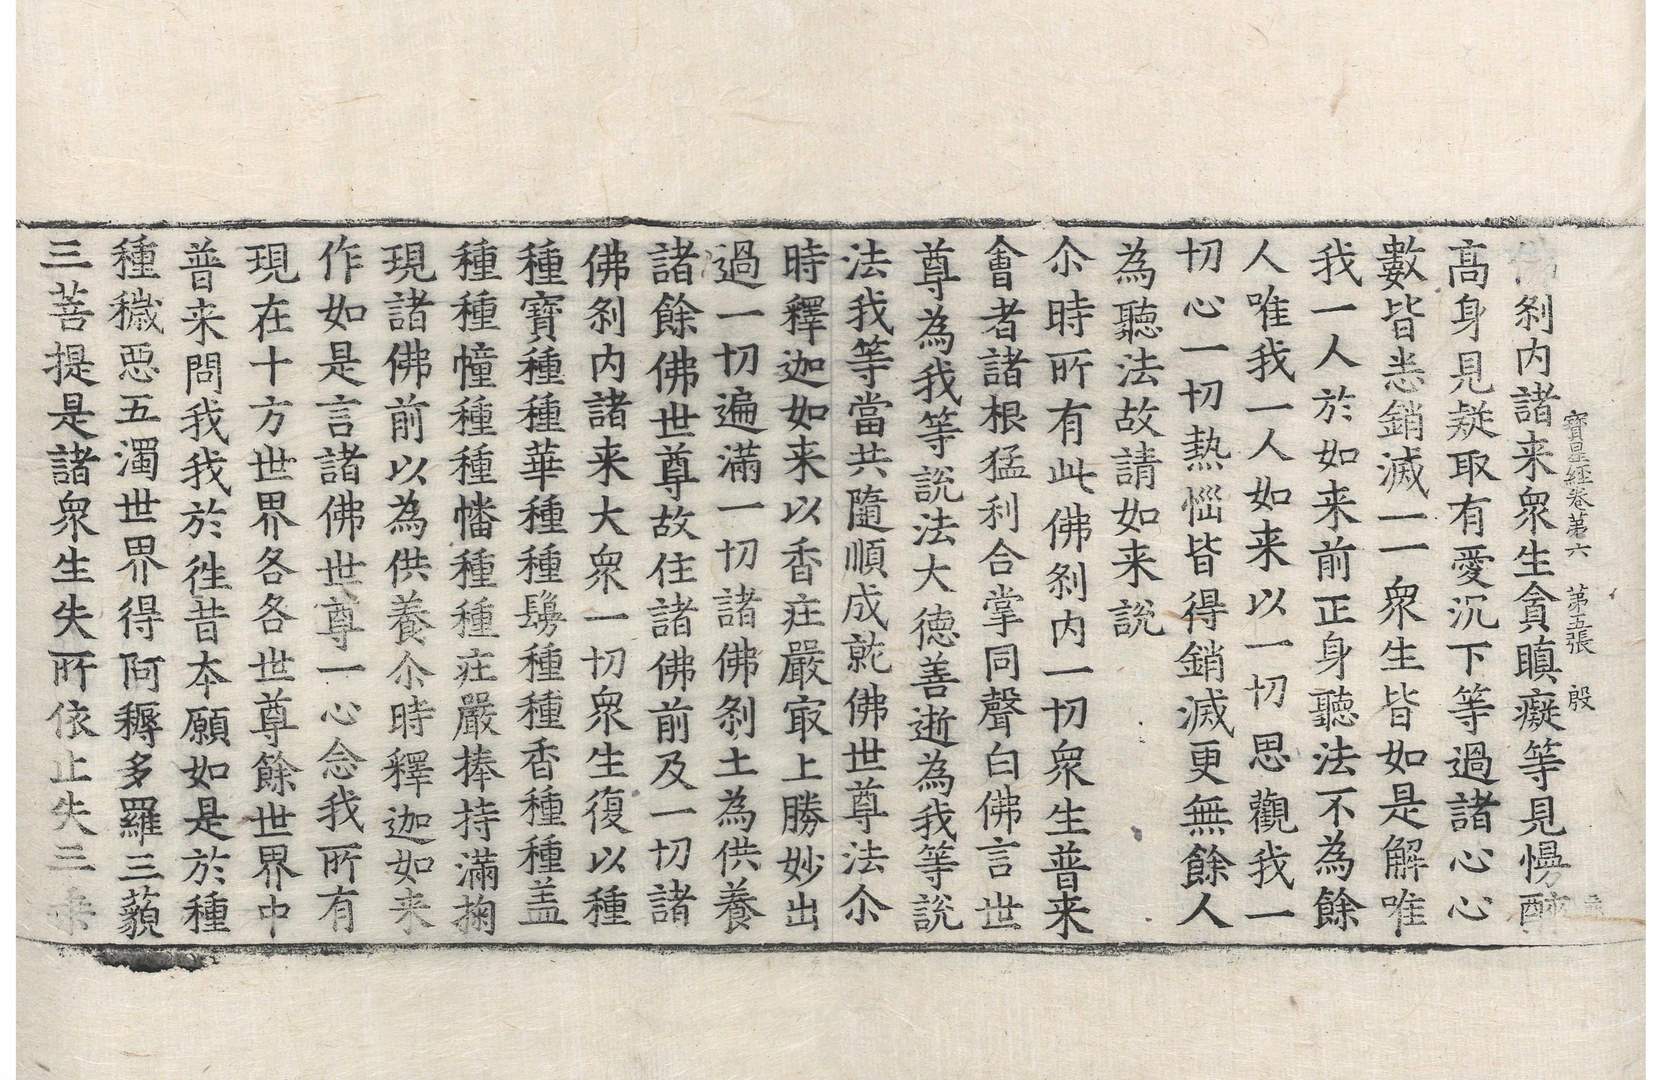 寶星經卷第六　第五張　殷
佛刹内諸来衆生貪瞋癡等見慢醉
髙身見疑取有愛沉下等過諸心心
數皆悉銷滅一一衆生皆如是解唯
我一人於如来前正身聽法不為餘
人唯我一人如来以一切思觀我一
切心一切熱惱皆得銷滅更無餘人
為聽法故請如来說
尒時所有此佛刹内一切衆生普来
會者諸根猛利合掌同聲白佛言世
尊為我等說法大德善逝為我等說
法我等當共隨順成就佛世尊法尒
時釋迦如来以香疘嚴㝡上勝妙出
過一切遍滿一切諸佛刹土為供養
諸餘佛世尊故住諸佛前及一切諸
佛刹内諸来大衆一切衆生復以種
種寶種種華種種鬘種種香種種盖
種種幢種種幡種種疘嚴捧持滿掬
現諸佛前以為供養尒時釋迦如来
作如是言諸佛世尊一心念我所有
現在十方世界各各世尊餘世界中
普来問我我於徃昔本願如是於種
種穢惡五濁世界得阿耨多羅三藐
三菩提是諸衆生失所依止失三乗